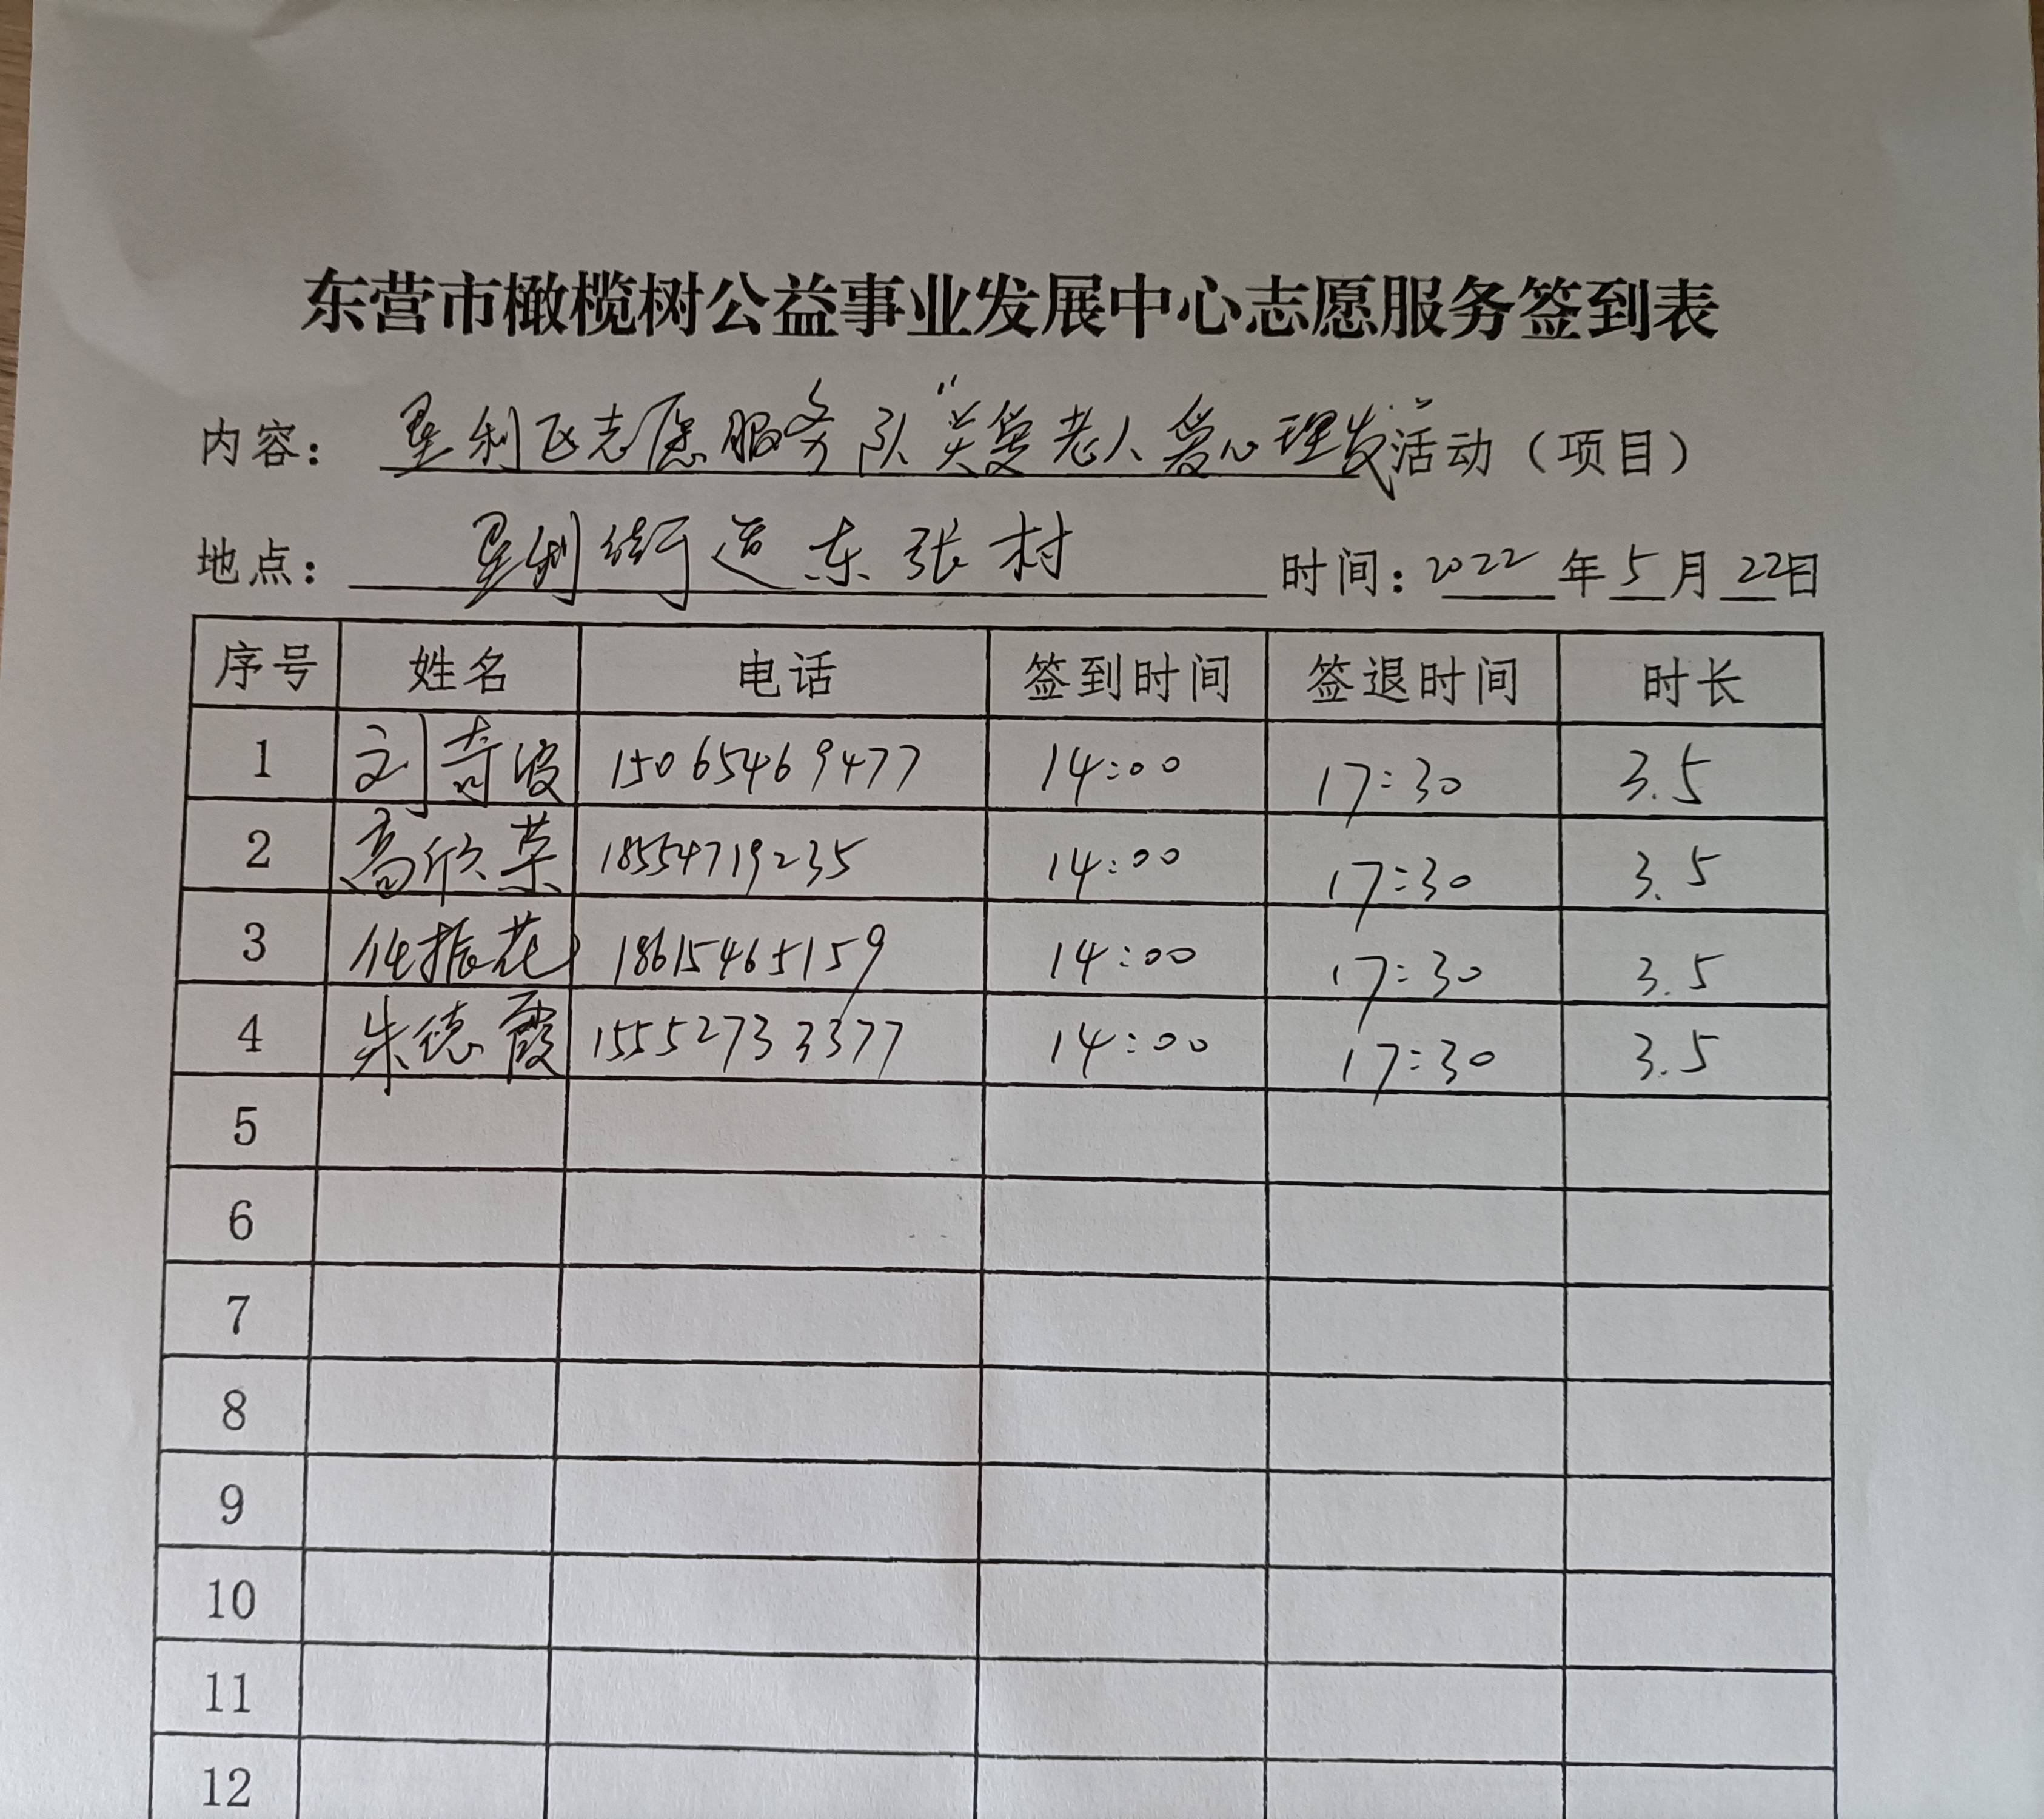 东营市橄榄树公益事业发展中心志愿服务签到表
内容：垦利区志愿服务队“关爱老人爱心理发”活动（项目）
地点：垦利街道东张村 时间：2022年5月22日
序号 姓名 电话 签到时间 签退时间 时长
1 刘奇波 15065469477 14:00 17:30 3.5
2 高欣荣 18554719235 14:00 17:30 3.5
3 振花 18615465159 14:00 17:30 3.5
4 朱德霞 15552733377 14:00 17:30 3.5
5
6
7
8
9
10
11
12